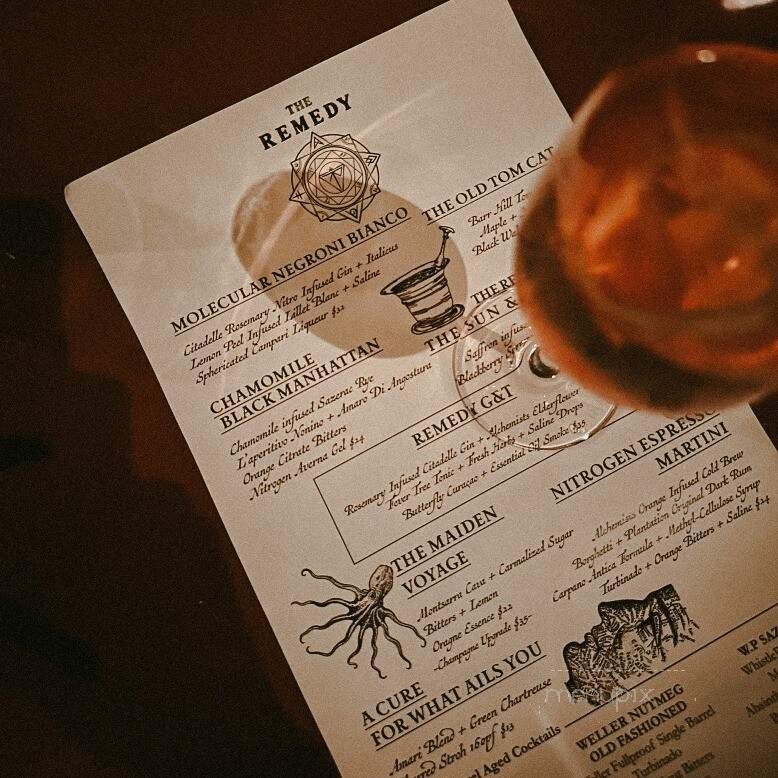 THE
REMEDY
MOLECULAR NEGRONI BIANCO
Citadelle Rosemary-Nitro Infused Gin + Italicus
Lemon Peel Infused Lillet Blanc + Saline
Sphericated Campari Liqueur $22
THE OLD TOM CAT
Barr Hill
Maple +
Black
CHAMOMILE
BLACK MANHATTAN
Chamomile infused Sazerac Rye
L'aperitivo Nonino + Amaro Di Angostura
Orange Citrate Bitters
Nitrogen Averna Gel $24
THE SUN &
Saffron
Blackberry
REMEDY G&T
Rosemary Infused Citadelle Gin + Alchemists Elderflower
Fever Tree Tonic + Fresh Herbs + Saline Drops
Butterfly Curaçao + Essential Oil Smoke $25
NITROGEN ESPRESSO
MARTINI
Alchemists Orange Infused Cold Brew
Borghetti + Plantation Original Dark Rum
Carpano Antica Formula + Methyl-Cellulose Syrup
Turbinado + Orange Bitters + Saline $24
THE MAIDEN
VOYAGE
Montsarra Cava + Carmalized Sugar
Bitters + Lemon
Oragne Essence $22
-Champagne Upgrade $35-
A CURE
FOR WHAT AILS YOU
Amari Blend + Green Chartreuse
Stroh 160pf $13
Aged Cocktails
WELLER NUTMEG
OLD FASHIONED
Fullproof Single Barrel
Turbinado
Bitters
W.P SAZ
menupix